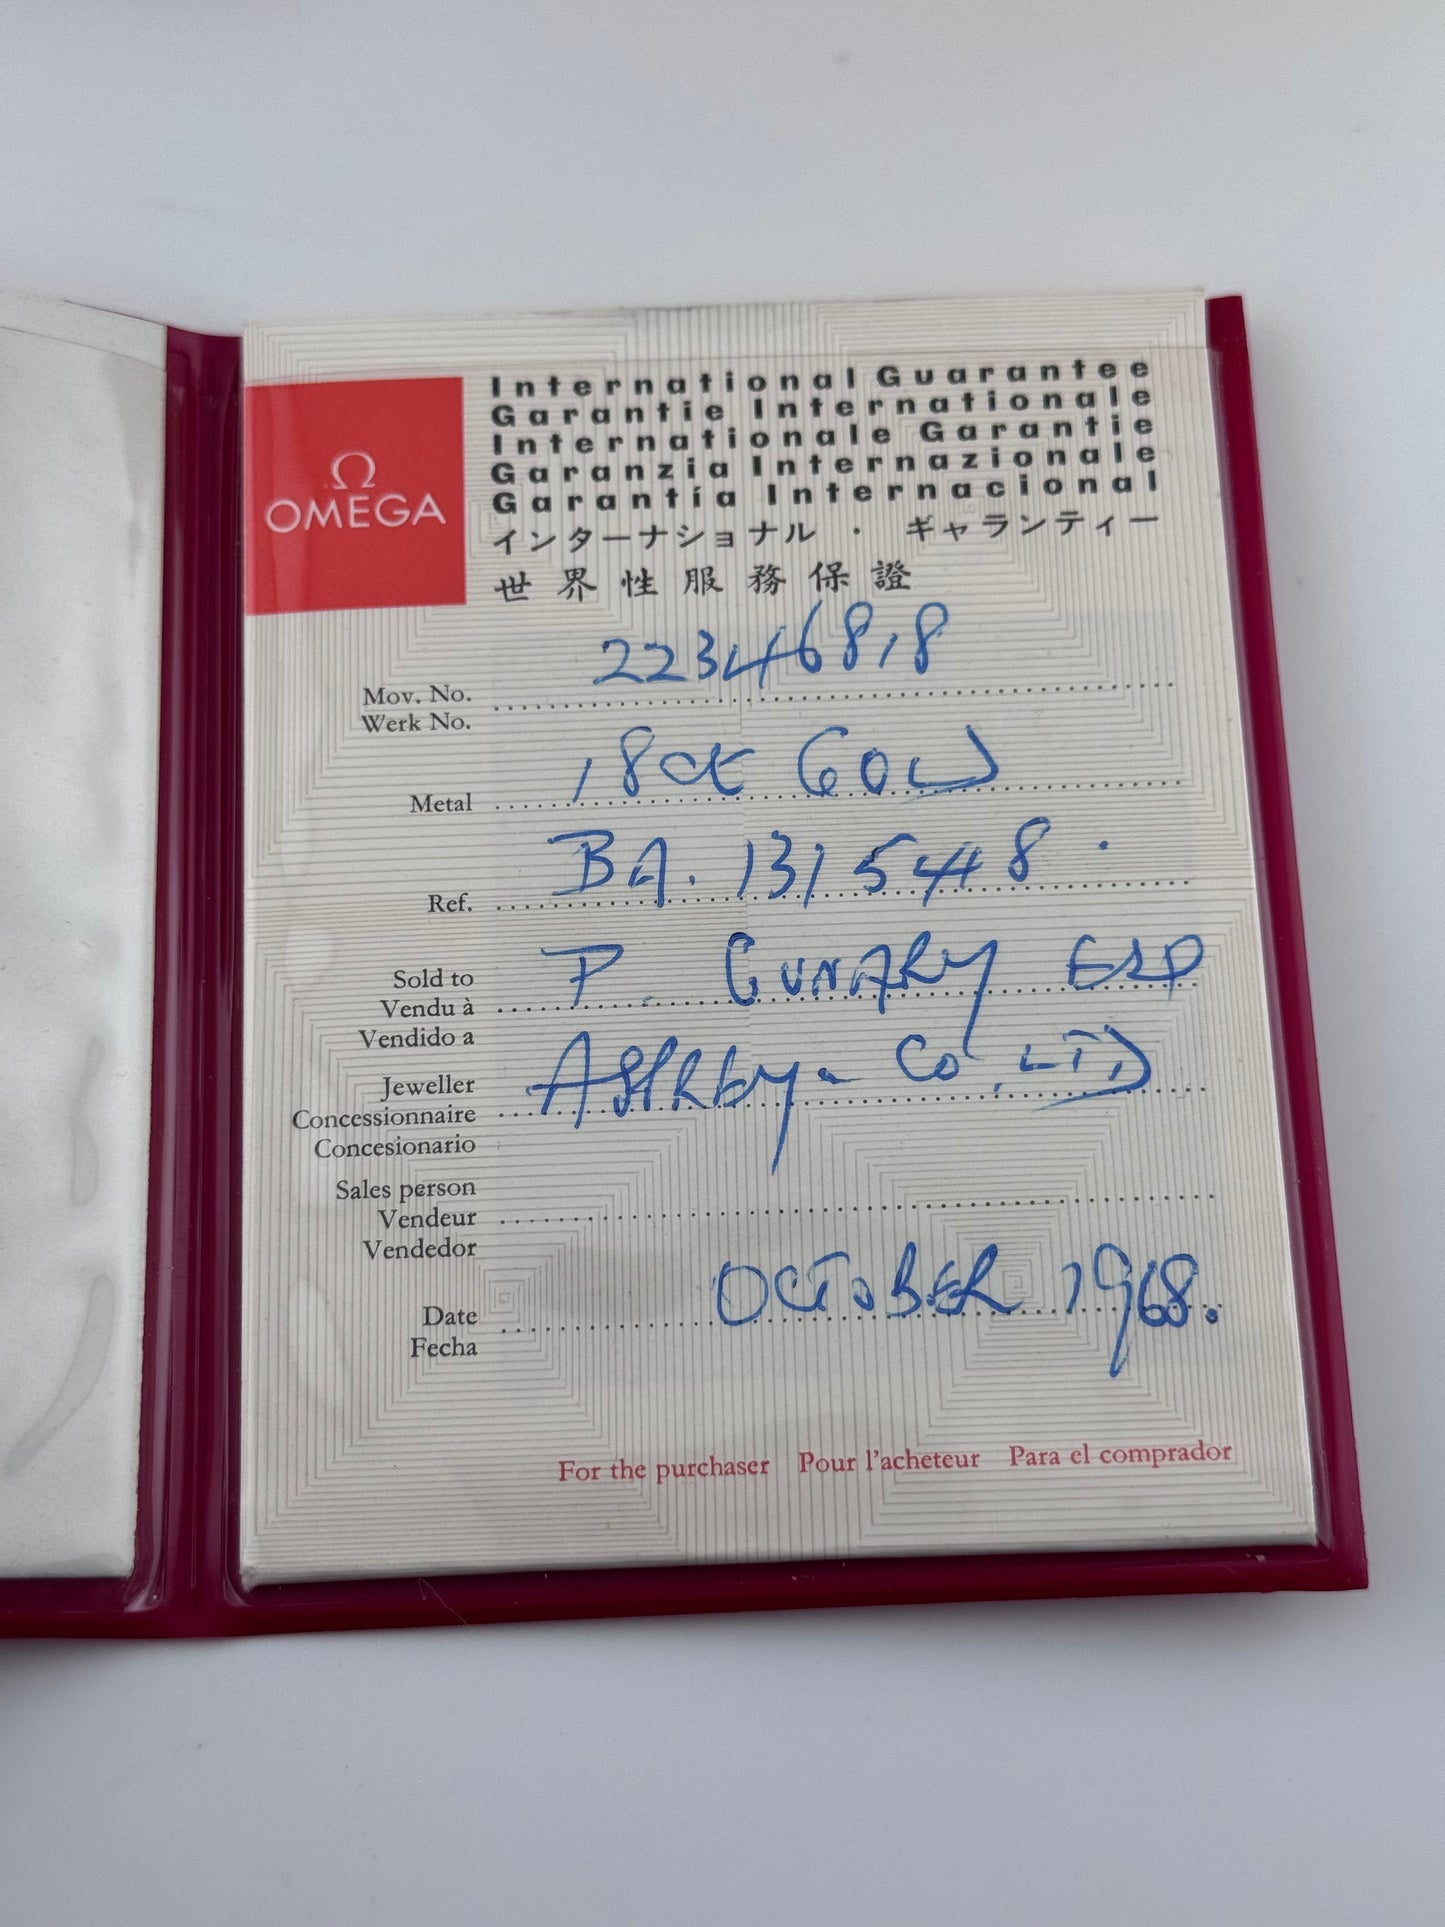 Ω
OMEGA
International Guarantee
Garantie Internationale
Internationale Garantie
Garanzia Internazionale
Garantía Internacional
インターナショナル・ギャランティー
世界性服務保證
Mov. No. 22346818
Werk No.
Metal 18ct GOLD
Ref. BA. 1315448.
Sold to P. GUNARY ESQ
Vendu à
Vendido a
Jeweller
Concessionnaire ASHRBY - Co. LTD
Concesionario
Sales person
Vendeur
Vendedor
Date OCTOBER 1968.
Fecha
For the purchaser Pour l'acheteur Para el comprador